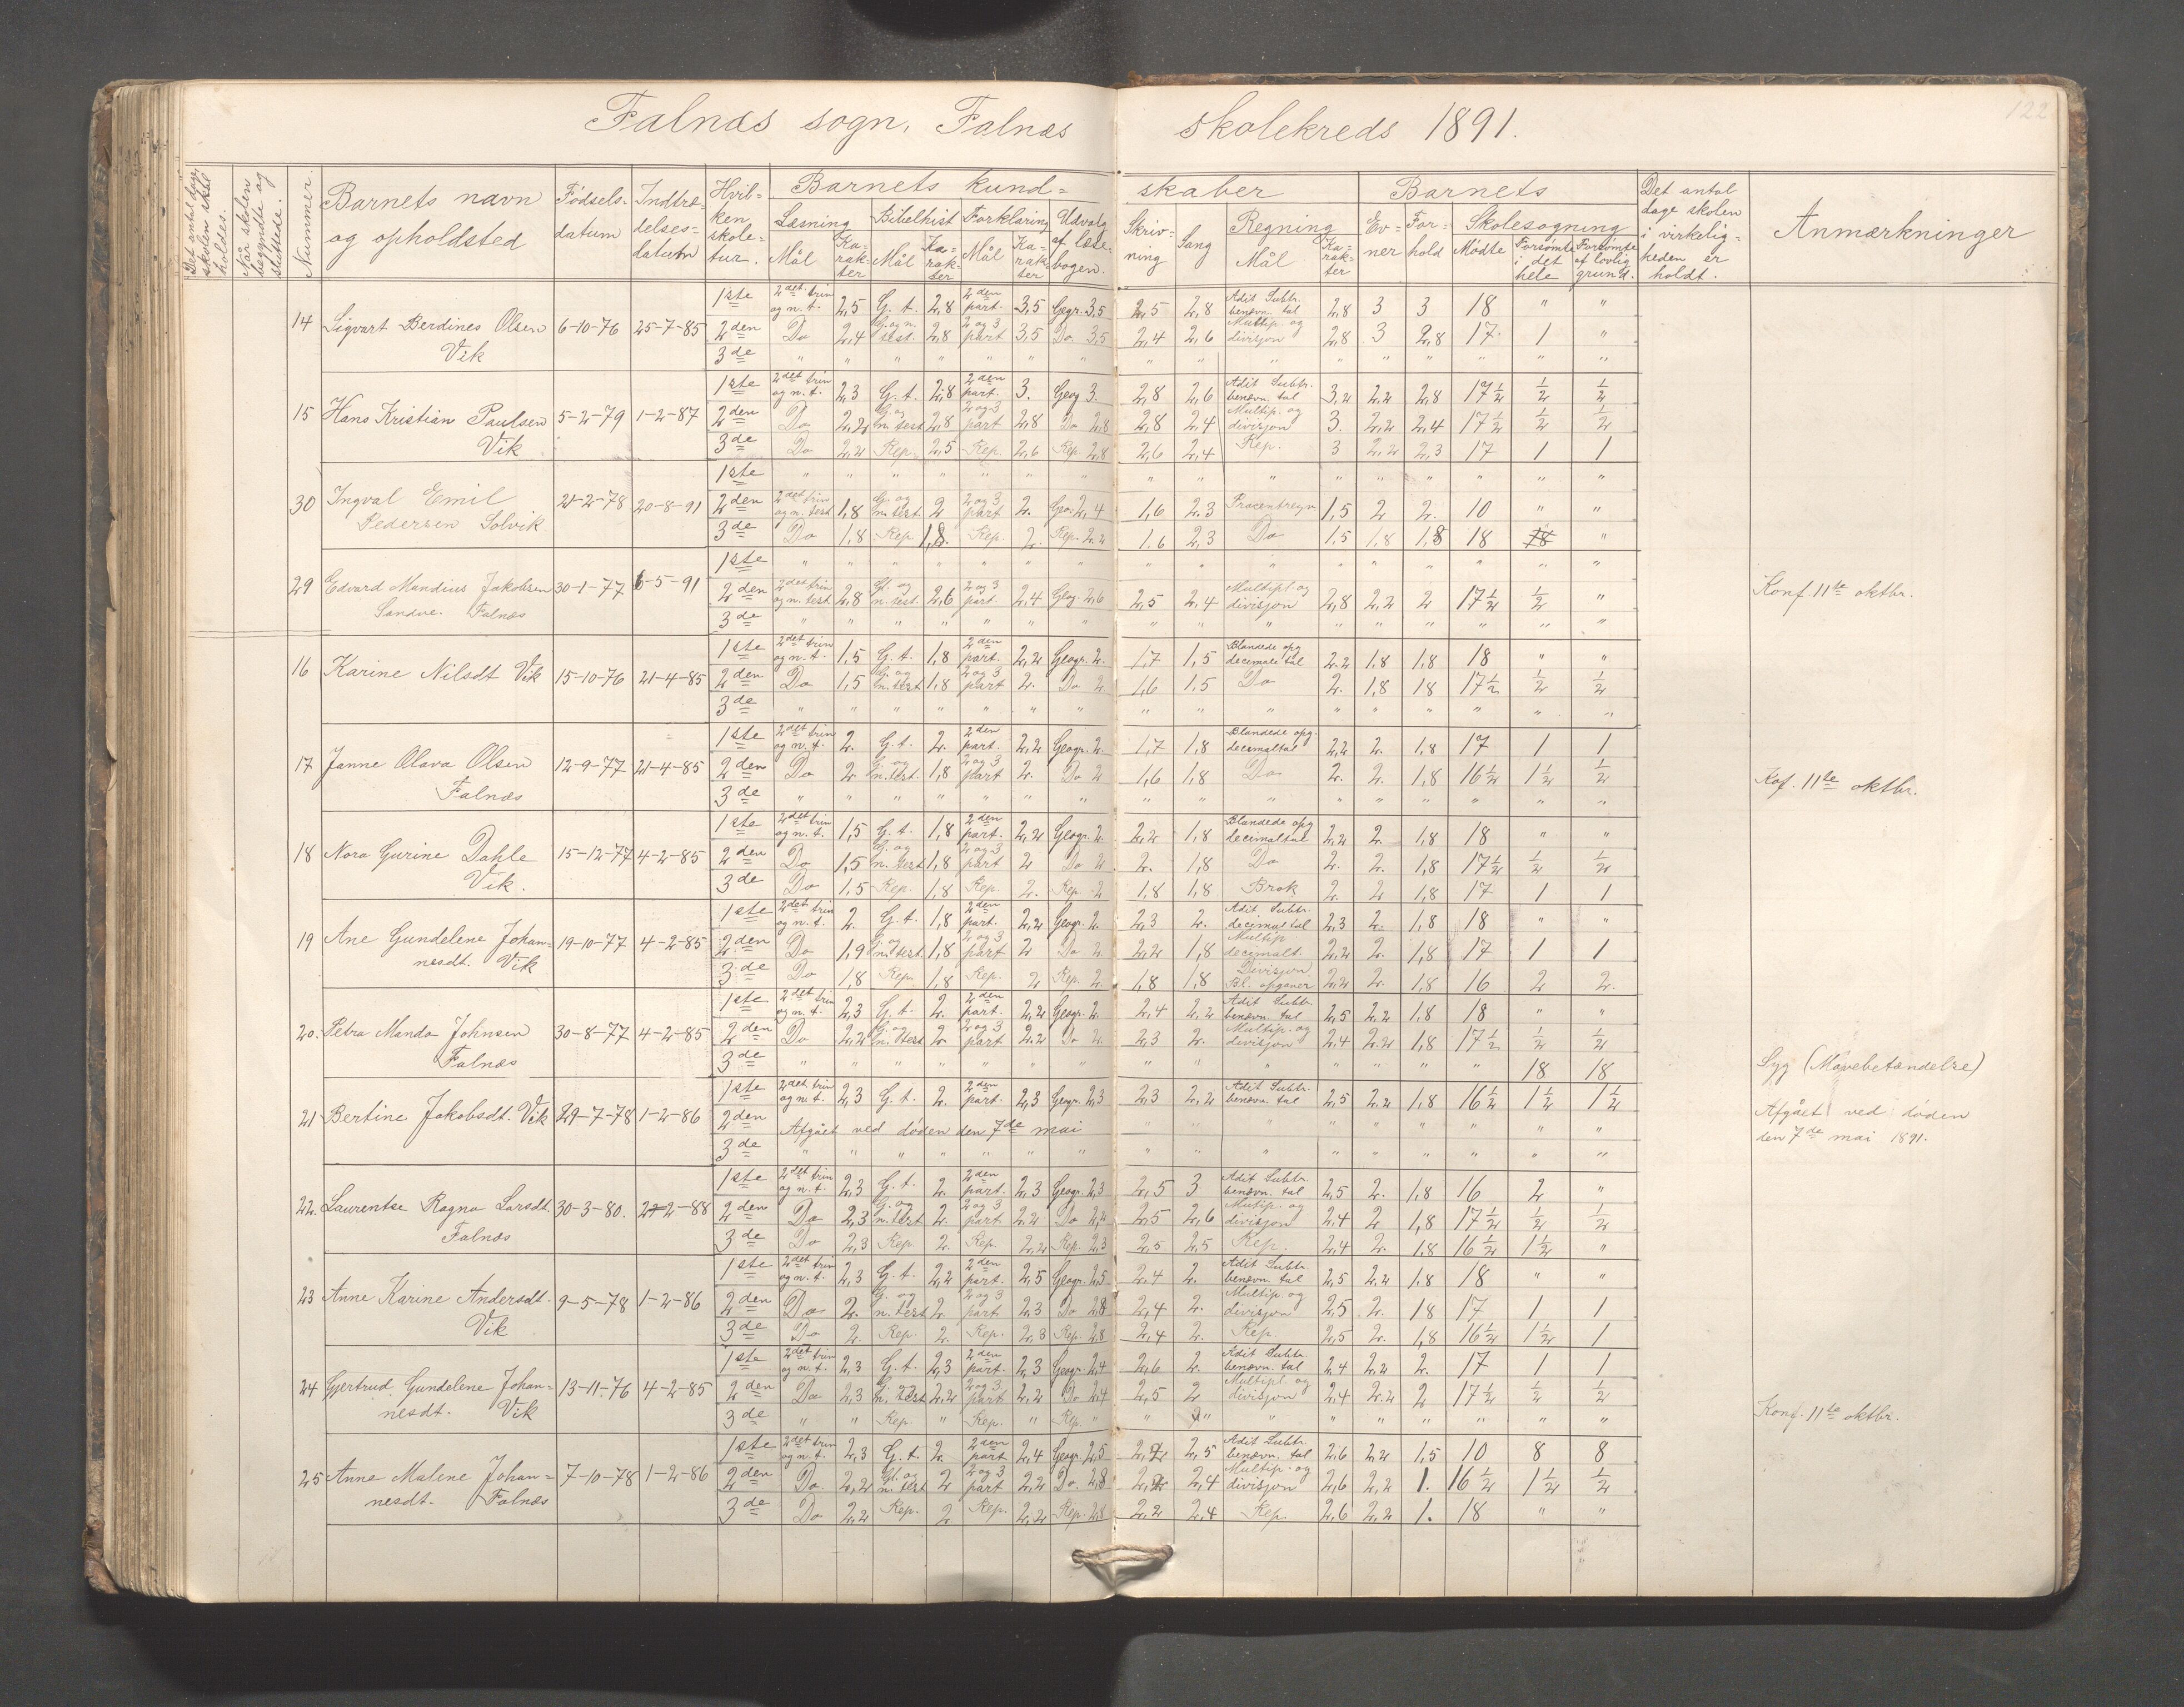 Falnæs sogn, Falnæs skolekreds 1891.
122
Det antal dage skolen skal holdes.
Når skolen begyndte og sluttede.
Nummer.
Barnets navn og opholdsted
Fødsels-datum
Indtræ-delses-datum
Hvil-ken skole-tur.
Barnets kund- skaber
Barnets
Læsning Bibelhist Forklaring Udvalg af læse-bogen.
Mål Ka-rak-ter Mål Ka-rak-ter Mål Ka-rak-ter
Skriv-ning Sang Regning Mål Ka-rak-ter
Ev-ner For-hold Skolesøgning Mødte Forsømte i det hele Forsømte af lovlig grund.
Det antal dage skolen i virkelig-heden er holdt.
Anmærkninger
14 Sigvart Berdines Olsen Vik 6-10-76 25-7-85
1ste 2det trin og n. t. 2,5 G. t. 2,8 2den part. 3,5 Geogr. 3,5 2,5 2,8 Adit Subtr. benævn. tal 2,8 3 3 18 " "
2den Do 2,4 G. og n. test. 2,8 2 og 3 part 3,5 Do 3,5 2,4 2,6 Multip og divisjon 2,8 3 2,8 17 1 "
3de " " " " " " " " " " " " " " " "
15 Hans Kristian Paulsen Vik 5-2-79 1-2-87
1ste 2det trin og n. t. 2,3 G. t. 2,8 2den part. 3. Geog 3. 2,8 2,6 Adit Subtr. benævn. tal 3,2 2,2 2,8 17½ ½ ½
2den Do 2,2 G. og n. test 2,8 2 og 3 part 2,8 Do 2,8 2,8 2,4 Multip. og divisjon 3. 2,2 2,4 17½ ½ ½
3de Do 2,2 Rep. 2,5 Rep. 2,6 Rep. 2,8 2,6 2,4 Rep. 3 2,2 2,3 17 1 1
30 Ingval Emil Pedersen Solvik 21-2-78 20-8-91
1ste " " " " " " " " " " " " " " " "
2den 2det trin og n. test 1,8 G. og n. test. 2 2 og 3 part 2. Geo. 2,4 1,6 2,3 Procentregn. 1,5 2 2. 10 " "
3de Do 1,8 Rep. 1,8. Rep. 2. Rep. 2,2 1.6 2,3 Do 1,5 1,8 1,8 18 18 "
29 Edvard Mandius Jakobsen Sandve. Falnæs 30-1-77 6-5-91
1ste " " " " " " " " " " " " " " " "
2den 2det trin og n. test 2,8 Gl. og n. test. 2,6 2 og 3 part. 2,4 Geog. 2,6 2,5 2,4 Multipl. og divisjon 2,8 2,2 2 17½ ½ " Konf. 11te oktbr.
3de " " " " " " " " " " " " " " " "
16 Karine Nilsdt Vik 15-10-76 21-4-85
1ste 2det trin og n. t. 1,5 G. t. 1,8 2den part. 2,2 Geogr. 2. 1,7 1,5 Blandede opg decimale tal 2.2 1,8 1,8 18 " "
2den Do 1,5 G. og n. test 1,8 2 og 3 part 2. Do 2 1,6 1,5 Do 2. 1,8 18 17½ ½ ½
3de " " " " " " " " " " " " " " " "
17 Janne Olava Olsen Falnæs 12-9-77 21-4-85
1ste 2det trin og n. t. 2. G. t. 2. 2den part. 2,2 Geogr. 2. 1,7 1,8 Blandede opg. decimaltal 2,2 2. 1,8 17 1 1
2den Do 2. G. og n. test. 1,8 2 og 3 part 2. Do 2 1,6 1,8 Do 2. 2. 1,8 16½ 1½ ½ Kof. 11te oktbr.
3de " " " " " " " " " " " " " " " "
18 Nora Gurine Dahle Vik. 15-12-77 4-2-85
1ste 2det trin og n. t. 1,5 G. t. 1,8 2den part. 2,2 Geogr. 2. 2,2 1,8 Blandede opg decimaltal 2,2 2. 1,8 18 " "
2den Do 1,5 G. og n. test 1,8 2 og 3 part 2 Do 2 2. 1,8 Do 2. 2. 1,8 17½ ½ ½
3de Do 1,5 Rep. 1,8 Rep. 2. Rep. 2 1,8 1,8 Brøk 2. 2 1,8 17 1 1
19 Ane Gundelene Johan-nesdt. Vik 19-10-77 4-2-85
1ste 2det trin og n. t. 2. G. t. 1,8 2den part. 2,2 Geogr. 2. 2,3 2. Adit Subtr. decimal tal 2,3 2. 1,8 18 " "
2den Do 1,9 G. og n. test 1,8 2 og 3 part 2 Do 2 2,2 1,8 Multip decimalt. 2,2 2. 1,8 17 1 1
3de Do 1,8 Rep. 1,8 Rep. 2 Rep. 2. 1,8 1,8 Divisjon Bl. opgaver 2,2 2. 1,8 16 2 2.
20. Petra Manda Johnsen Falnæs 30-8-77 4-2-85
1ste 2det trin og n. t. 2,3 G. t. 2. 2den part. 2,2 Geogr. 2. 2,4 2,2 Adit Subtr. benævn. tal 2,5 2,2 1,8 18 " "
2den Do 2,2 G. og n. test 2. 2 og 3 part 2.2 Do 2. 2,3 2. Multip. og divisjon 2,4 2.2 1,8 17½ ½ ½
3de " " " " " " " " " " " " " " 18 18 Syg (Mavebetændelse)
21 Bertine Jakobsdt. Vik 29-7-78 1-2-86
1ste 2det trin og n. t. 2,3 G. t. 2. 2den part. 2,3 Geogr. 2,3 2,3 2,2 Adit Subtr. benævn. tal 2,5 2,2 1,8 16½ 1½ 1½
2den Afgået ved døden den 7de mai " " " " " " " " " Afgået ved døden den 7de mai 1891.
3de " " " " " " " " " " " " " " " "
22. Laurentse Ragna Larsdt. Falnæs 30-3-80. 2-2-88
1ste 2det trin og n. t. 2,3 G. t. 2. 2den part. 2,3 Geogr. 2,3 2,5 3 Adit Subtr. benævn. tal 2,5 2. 1,8 16 2 "
2den Do 2,3 G. og n. test 2. 2 og 3 part 2,2 Do 2,2 2,5 2,6 Multip. og divisjon 2,4 2 1,8 17½ ½ ½
3de Do 2,3 Rep. 2. Rep. 2,2 Rep. 2,3 2,5 2,5 Rep. 2,4 2. 1,8 16½ 1½ "
23 Anne Karine Andersdt. Vik 9-5-78 1-2-86
1ste 2det trin og n. t. 2,3 G. t. 2,2 2den part. 2,5 Geogr. 2,5 2,4 2. Adit Subtr. benævn. tal 2,5 2,2 1.8 18 " "
2den Do 2. G. og n. test 2. 2 og 3 part 2,3 Do 2,8 2,4 2. Multip. og divisjon 2,5 2. 18 17 1 1
3de Do 2. Rep. 2. Rep. 2,3 Rep. 2.8 2,4 2. Rep. 2,5 2. 1,8 16½ 1½ 1
24 Gjertrud Gundelene Johan-nesdt. Vik 13-11-76 4-2-85
1ste 2det trin og n. t. 2,3 G. t. 2,3 2den part. 2,3 Geogr. 2,4 2,6 2. Adit Subtr. benævn. tal 2.4 2,2 2. 17 1 1
2den Do 2,3 G. og n. test 2,2 2 og 3 part 2,2 Do 2,4 2,5 2 Multipl. og divisjon 2,4 2.2 2 17½ ½ ½
3de " " Rep. " Rep. " Rep. " " " " " " " " " " Konf. 11te oktbr.
25 Anne Malene Johan-nesdt. Falnæs 7-10-78 1-2-86
1ste 2det trin og n. t. 2,3 G. t. 2. 2den part 2,4 Geogr. 2,5 2,2 2,5 Adit Subtr. benævn. tal 2,6 2,2 1,5 10 8 8
2den Do. 2,2 Gl. og n. test 2 2 og 3 part 2,2 Do. 2,8 2,2 2,4 Multip. og divisjon 2,6 2,2 1. 16½ 1½ ½
3de Do 2,2 Rep. 2 Rep. 2,2 Rep. 2,8 2,2 2,4 Rep. 2,6 2,2 1. 18 " "